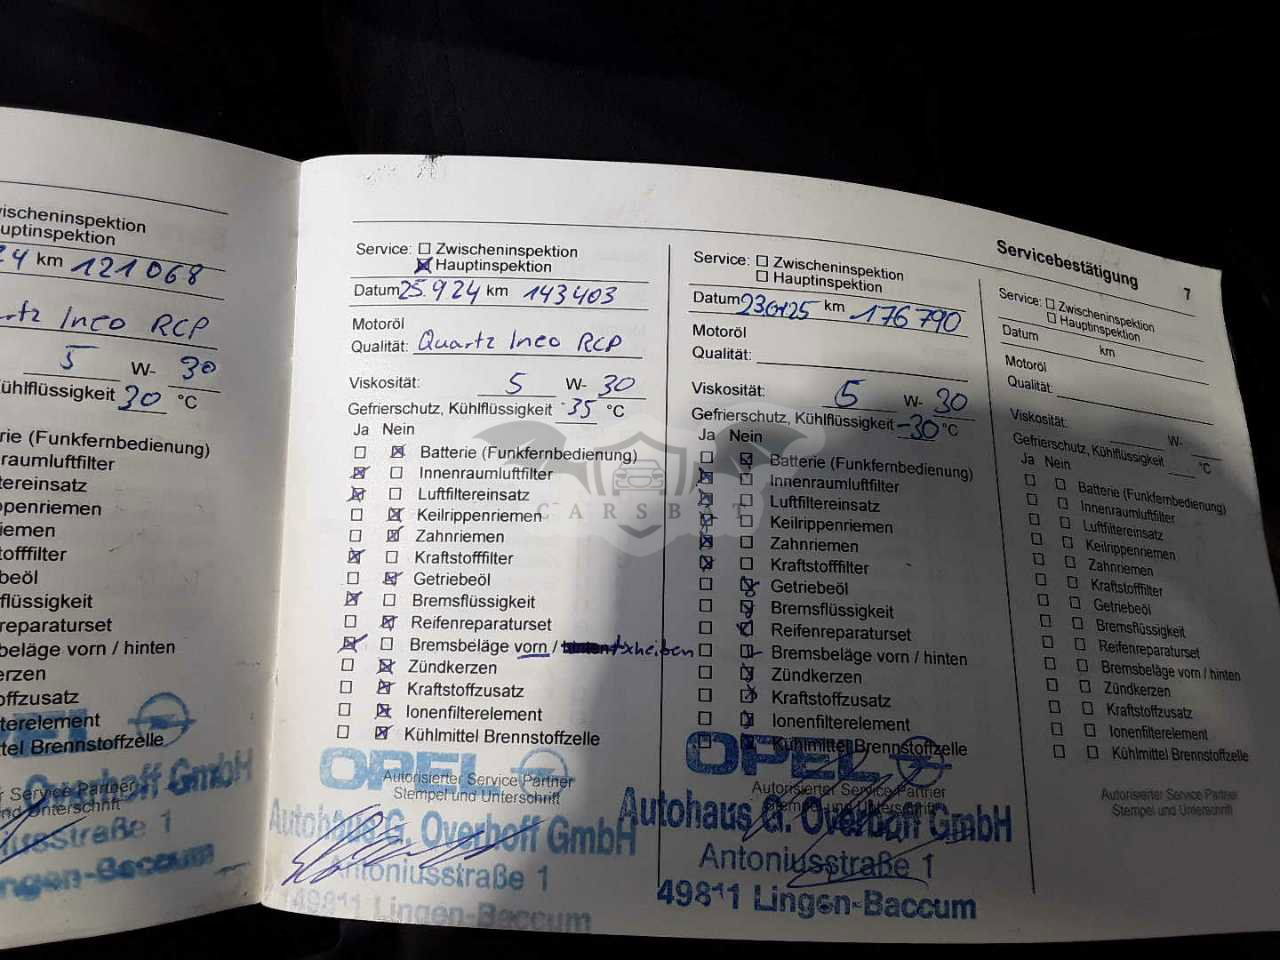 Servicebestätigung 7
wischeninspektion
uptinspektion
24 km 121068
rtz Ineo RCP
5 W- 30
Kühlflüssigkeit 30 °C
rie (Funkfernbedienung)
raumluftfilter
tereinsatz
ppenriemen
iemen
tofffilter
beöl
flüssigkeit
reparaturset
beläge vorn / hinten
erzen
offzusatz
terelement
tel Brennstoffzelle
OPEL
r Service Partner
nd Unterschrift
Overhoff GmbH
iusstraße 1
ngen-Baccum
Service: Zwischeninspektion
Hauptinspektion
Datum 25.9 24 km 143403
Motoröl
Qualität: Quartz Ineo RCP
Viskosität: 5 W- 30
Gefrierschutz, Kühlflüssigkeit -35 °C
Ja Nein
Batterie (Funkfernbedienung)
Innenraumluftfilter
Luftfiltereinsatz
Keilrippenriemen
Zahnriemen
Kraftstofffilter
Getriebeöl
Bremsflüssigkeit
Reifenreparaturset
Bremsbeläge vorn / hinten + xheiben
Zündkerzen
Kraftstoffzusatz
Ionenfilterelement
Kühlmittel Brennstoffzelle
OPEL
Autorisierter Service Partner
Stempel und Unterschrift
Autohaus G. Overhoff GmbH
Antoniusstraße 1
49811 Lingen-Baccum
Service: Zwischeninspektion
Hauptinspektion
Datum km 176790
Motoröl
Qualität:
Viskosität: 5 W- 30
Gefrierschutz, Kühlflüssigkeit -30 °C
Ja Nein
Batterie (Funkfernbedienung)
Innenraumluftfilter
Luftfiltereinsatz
Keilrippenriemen
Zahnriemen
Kraftstofffilter
Getriebeöl
Bremsflüssigkeit
Reifenreparaturset
Bremsbeläge vorn / hinten
Zündkerzen
Kraftstoffzusatz
Ionenfilterelement
Kühlmittel Brennstoffzelle
OPEL
Autorisierter Service Partner
Stempel und Unterschrift
Autohaus G. Overhoff GmbH
Antoniusstraße 1
49811 Lingen-Baccum
Service: Zwischeninspektion
Hauptinspektion
Datum km
Motoröl
Qualität:
Viskosität: W-
Gefrierschutz, Kühlflüssigkeit °C
Ja Nein
Batterie (Funkfernbedienung)
Innenraumluftfilter
Luftfiltereinsatz
Keilrippenriemen
Zahnriemen
Kraftstofffilter
Getriebeöl
Bremsflüssigkeit
Reifenreparaturset
Bremsbeläge vorn / hinten
Zündkerzen
Kraftstoffzusatz
Ionenfilterelement
Kühlmittel Brennstoffzelle
Autorisierter Service Partner
Stempel und Unterschrift